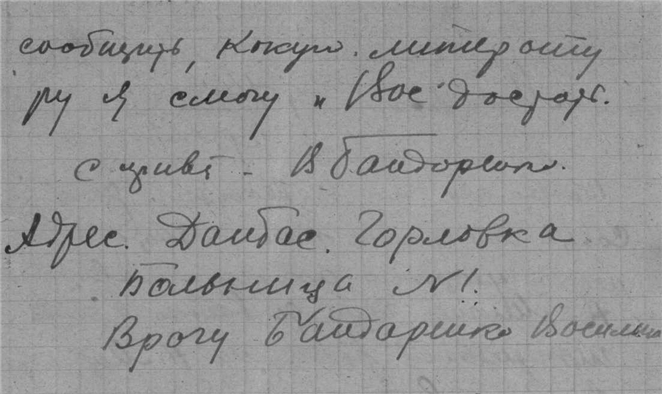 сообщить, какую литерату
ру я смогу у Вас достать.
с привет - В Бандаренко.
Адрес. Данбас. Горловка
Больница №1.
Врачу Бандаренко Василию